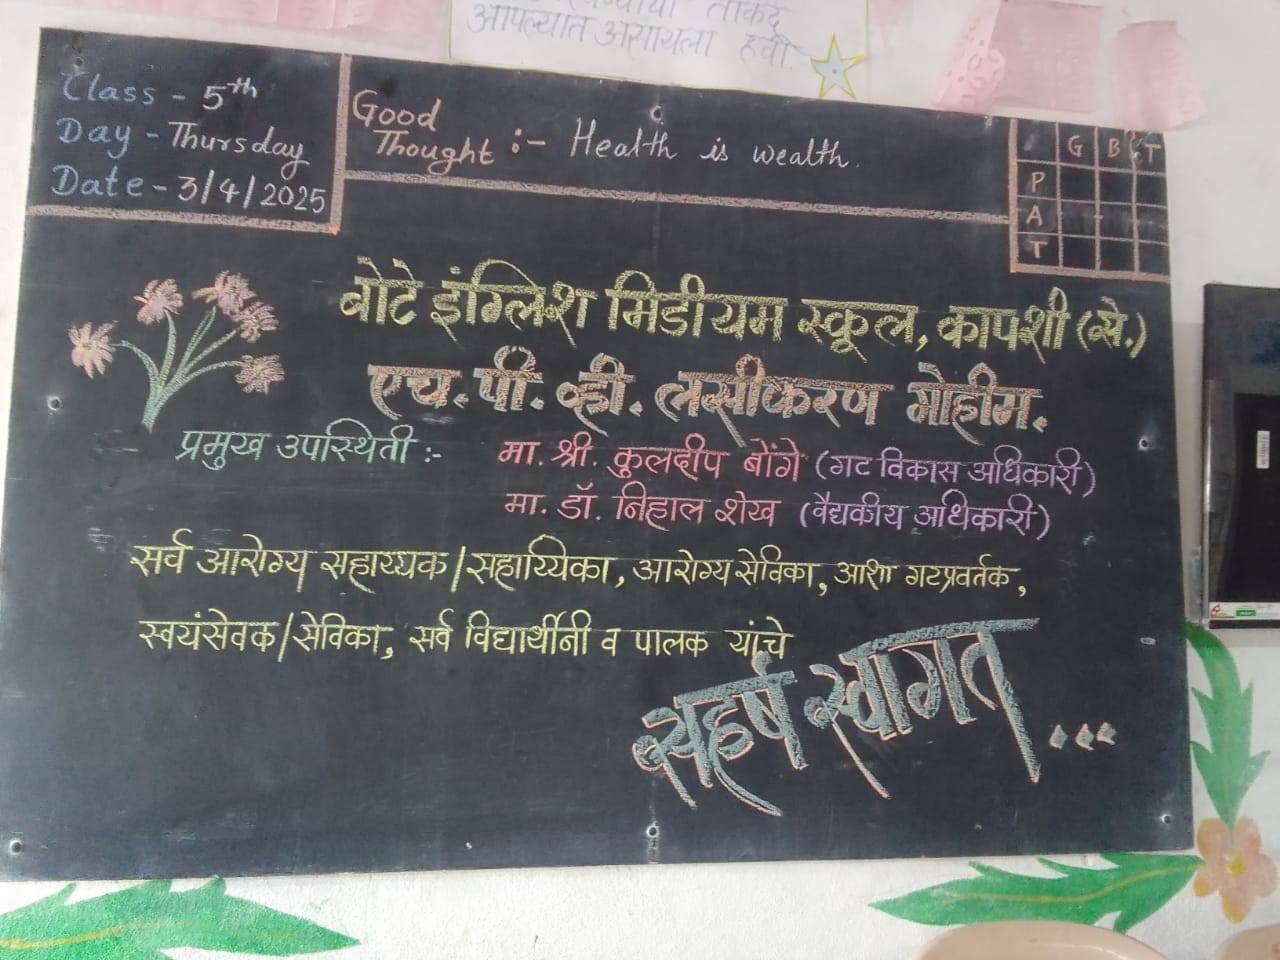 आपल्यात असायला हवी.
Class - 5th
Day - Thursday
Date - 3/4/2025
Good Thought :- Health is wealth.
G B T
P
A
T
वोटे इंग्लिश मिडीयम स्कूल, कापशी (से.)
एच. पी. व्ही. लसीकरण मोहीम.
प्रमुख उपस्थिती :- मा. श्री. कुलदीप बोंगे (गट विकास अधिकारी)
मा. डॉ. निहाल शेख (वैद्यकीय अधिकारी)
सर्व आरोग्य सहाय्यक/सहाय्यिका, आरोग्य सेविका, आशा गटप्रवर्तक,
स्वयंसेवक/सेविका, सर्व विद्यार्थीनी व पालक यांचे
सहर्ष स्वागत...